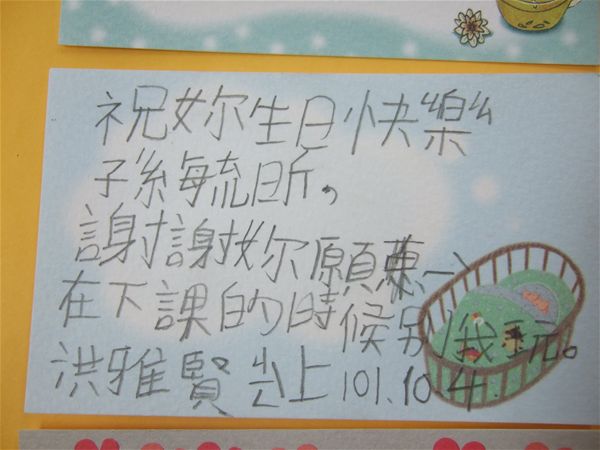 祝妳生日快樂
孫毓昕，
謝謝妳願
在下課的時候別我玩。
洪雅賢 上 101.10.4.